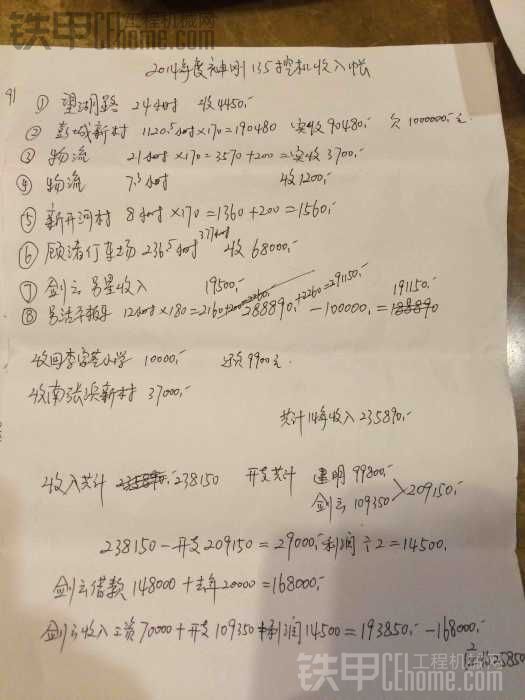 铁甲工程机械网
CEhome.com
2014年度神刚135挖机收入帐
91
① 望湖路 24小时 收4450,-
② 彭城新村 1120.5小时×170=190480 实收90480,- 欠1000000,-元
③ 物流 21小时×170=3570+200=实收3700,-
④ 物流 7.3小时 收1200,-
⑤ 新开河村 8小时×170=1360+200=1560,-
⑥ 顾渚停车场 236.5小时 377小时 收68000,-
⑦ 剑云 收入 19500,-
⑧ 12小时×180=2160+200=2260 288890,- +2260=291150,- -100000,- =188890 191150,-
收回李家巷小学 10000,- 还欠9900元.
收南张浜新村 37000,-
共计14年收入235890,-
收入共计 235890,- 238150 开支共计 建明99800,-
剑云109350 209150,-
238150-开支209150=29000,-利润÷2=14500.
剑云借款148000+去年20000=168000,-
剑云收入工资70000+开支109350+利润14500=193850,- -168000,-
25850
铁甲工程机械网
CEhome.com